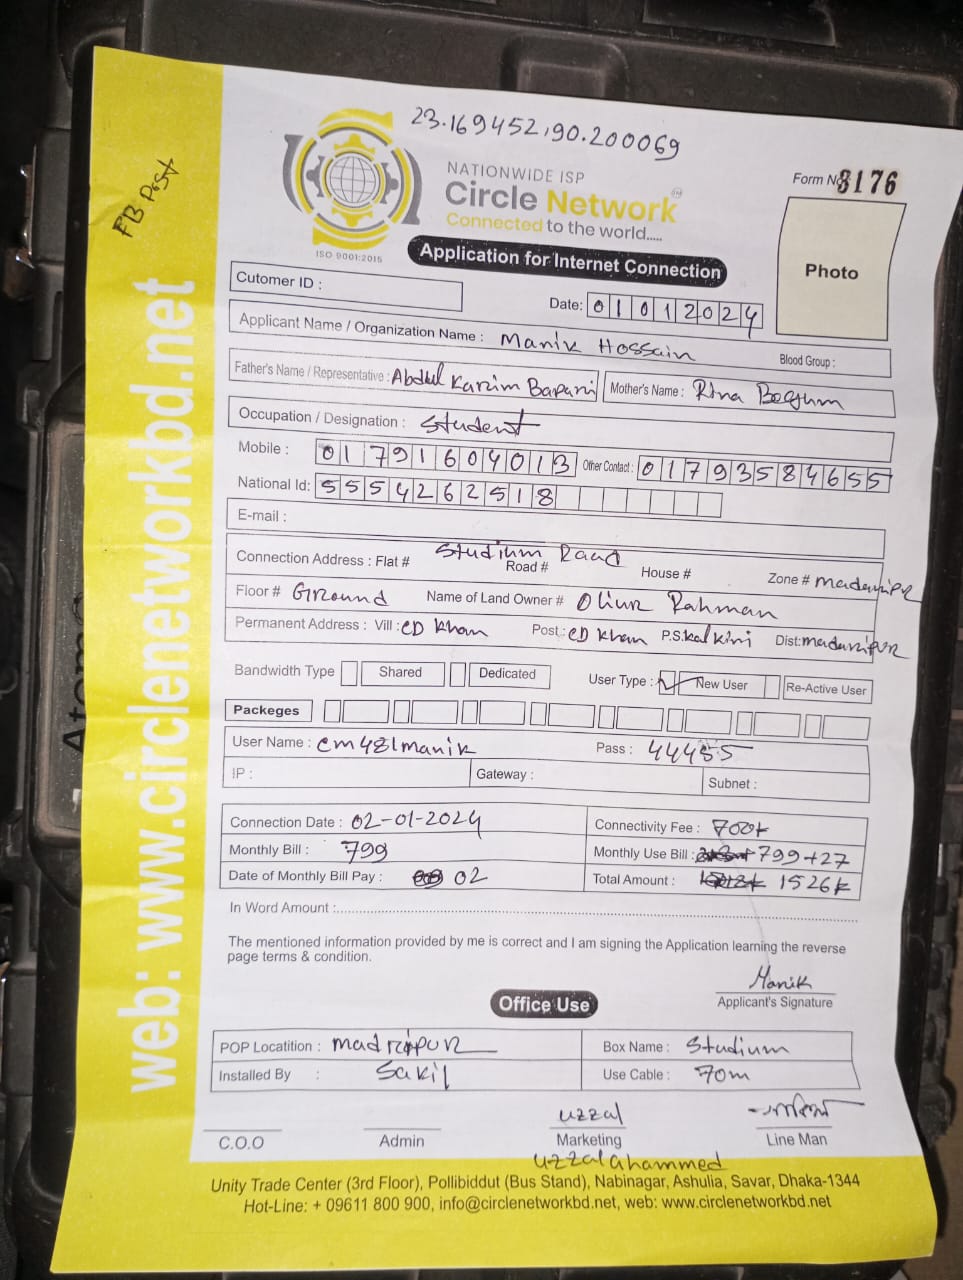 23.169452,90.200069
FB Post
NATIONWIDE ISP
Circle Network
Connected to the world.....
ISO 9001:2015
Form No 8176
Photo
Application for Internet Connection
Cutomer ID :
Date: 01012024
Applicant Name / Organization Name : Manik Hossain Blood Group :
Father's Name / Representative : Abdul Karim Bapari Mother's Name : Rina Begum
Occupation / Designation : Student
Mobile : 01791604013 Other Contact : 01793584655
National Id: 5554262518
E-mail :
Connection Address : Flat # Studium Raad Road # House # Zone # madaripur
Floor # Ground Name of Land Owner # Oliur Rahman
Permanent Address : Vill : CD Khan Post : CD Khan P.S. kalkini Dist: madaripur
Bandwidth Type Shared Dedicated User Type : New User Re-Active User
Packeges
User Name : cm481manik Pass : 44455
IP : Gateway : Subnet :
Connection Date : 02-01-2024 Connectivity Fee : 700tk
Monthly Bill : 799 Monthly Use Bill : 799+27
Date of Monthly Bill Pay : 02 Total Amount : 1526tk
In Word Amount :
The mentioned information provided by me is correct and I am signing the Application learning the reverse
page terms & condition.
Manik
Applicant's Signature
Office Use
POP Locatition : madripur Box Name : Studium
Installed By : Sakil Use Cable : 70m
uzzal
C.O.O Admin Marketing Line Man
uzzalahammed
Unity Trade Center (3rd Floor), Pollibiddut (Bus Stand), Nabinagar, Ashulia, Savar, Dhaka-1344
Hot-Line: + 09611 800 900, info@circlenetworkbd.net, web: www.circlenetworkbd.net
web: www.circlenetworkbd.net